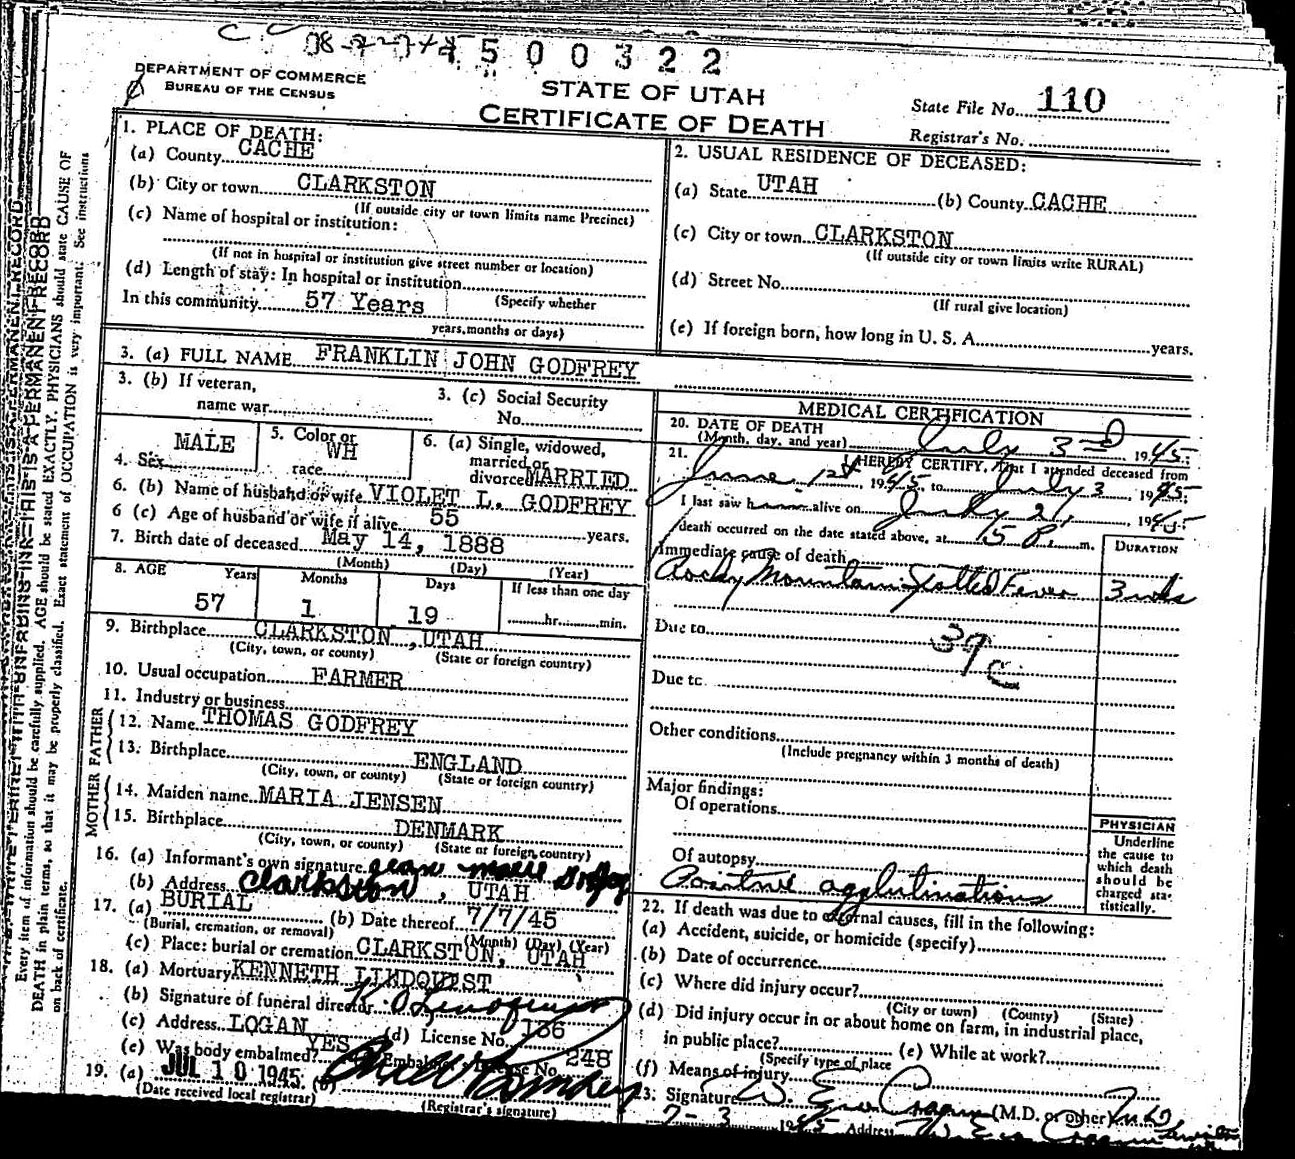 4500322
DEPARTMENT OF COMMERCE
BUREAU OF THE CENSUS
STATE OF UTAH
CERTIFICATE OF DEATH
State File No. 110
Registrar's No.
1. PLACE OF DEATH:
(a) County CACHE
(b) City or town CLARKSTON
(If outside city or town limits name Precinct)
(c) Name of hospital or institution:
(If not in hospital or institution give street number or location)
(d) Length of stay: In hospital or institution
In this community 57 Years (Specify whether
years, months or days)
2. USUAL RESIDENCE OF DECEASED:
(a) State UTAH (b) County CACHE
(c) City or town CLARKSTON
(If outside city or town limits write RURAL)
(d) Street No.
(If rural give location)
(e) If foreign born, how long in U. S. A. years.
3. (a) FULL NAME FRANKLIN JOHN GODFREY
3. (b) If veteran,
name war
3. (c) Social Security
No.
4. Sex MALE
5. Color or
race WH
6. (a) Single, widowed,
married or
divorced MARRIED
6. (b) Name of husband or wife VIOLET L. GODFREY
6 (c) Age of husband or wife if alive 55 years.
7. Birth date of deceased May 14, 1888
(Month) (Day) (Year)
8. AGE Years Months Days If less than one day
57 1 19 hr. min.
9. Birthplace CLARKSTON, UTAH
(City, town, or county) (State or foreign country)
10. Usual occupation FARMER
11. Industry or business
FATHER
12. Name THOMAS GODFREY
13. Birthplace ENGLAND
(City, town, or county) (State or foreign country)
MOTHER
14. Maiden name MARIA JENSEN
15. Birthplace DENMARK
(City, town, or county) (State or foreign country)
16. (a) Informant's own signature
(b) Address Clarkston, UTAH
17. (a) BURIAL (b) Date thereof 7/7/45
(Burial, cremation, or removal) (Month) (Day) (Year)
(c) Place: burial or cremation CLARKSTON, UTAH
18. (a) Mortuary KENNETH LINDQUIST
(b) Signature of funeral director
(c) Address LOGAN (d) License No. 136
(e) Was body embalmed? YES Embalmer's License No. 248
19. (a) JUL 10 1945 (b)
(Date received local registrar) (Registrar's signature)
MEDICAL CERTIFICATION
20. DATE OF DEATH
(Month, day, and year) July 3rd, 1945
21. I HEREBY CERTIFY, That I attended deceased from
June 1st, 1945 to July 3, 1945
I last saw him alive on July 2, 1945
death occurred on the date stated above, at m.
DURATION
Immediate cause of death
Rocky Mountain Spotted Fever 3 wks
Due to 39c
Due to
Other conditions
(Include pregnancy within 3 months of death)
Major findings:
Of operations
Of autopsy
Positive agglutinations
PHYSICIAN
Underline
the cause to
which death
should be
charged sta-
tistically.
22. If death was due to external causes, fill in the following:
(a) Accident, suicide, or homicide (specify)
(b) Date of occurrence
(c) Where did injury occur?
(City or town) (County) (State)
(d) Did injury occur in or about home on farm, in industrial place,
in public place? (e) While at work?
(Specify type of place
(f) Means of injury
23: Signature (M.D. or other) M.D.
7-3 1945 Address
Every item of information should be carefully supplied. AGE should be stated EXACTLY. PHYSICIANS should state CAUSE OF
DEATH in plain terms, so that it may be properly classified. Exact statement of OCCUPATION is very important. See instructions
on back of certificate.